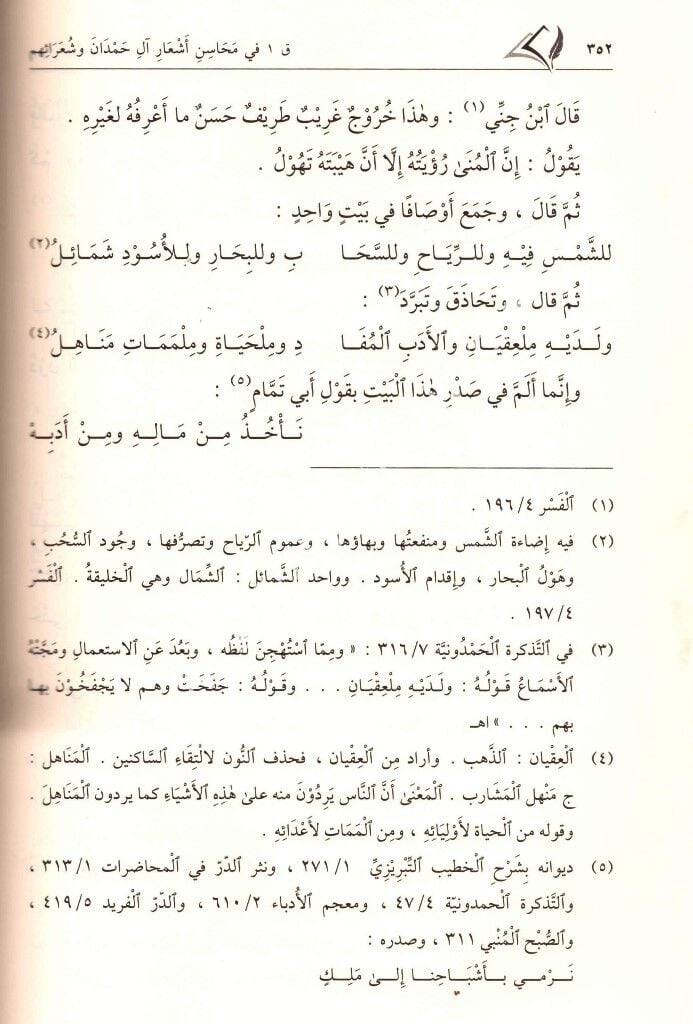 ٣٥٢ ق ١ في مَحَاسِنِ أَشْعَارِ آلِ حَمْدَانَ وشُعَرَائِهِم
قَالَ ٱبْنُ جِنِّي(١) : وهٰذَا خُرُوْجٌ غَرِيْبٌ طَرِيْفٌ حَسَنٌ ما أَعْرِفُهُ لغَيْرِهِ .
يَقُوْلُ : إِنَّ ٱلْمُنَىٰ رُؤْيَتُهُ إِلَّا أَنَّ هَيْبَتَهُ تَهُوْلُ .
ثُمَّ قَالَ ، وجَمَعَ أَوْصَافًا في بَيْتٍ وَاحِدٍ :
للشَّمْسِ فِيْهِ وللرِّيَاحِ وللسَّحَا بِ وللبِحَارِ وللأُسُوْدِ شَمَائِلُ(٢)
ثُمَّ قال ، وتَحَاذَقَ وتَبَرَّدَ(٣) :
ولَدَيْهِ مِلْعِقْيَانِ وٱلأَدَبِ ٱلْمُفَا دِ ومِلْحَيَاةِ ومِلْمَمَاتِ مَنَاهِلُ(٤)
وإِنَّما أَلَمَّ في صَدْرِ هٰذَا ٱلْبَيْتِ بقَوْلِ أَبي تَمَّامٍ(٥) :
نَأْخُذُ مِنْ مَالِهِ ومِنْ أَدَبِهْ
(١) ٱلْفَسْر ٤/ ١٩٦ .
(٢) فيه إضاءة ٱلشَّمس ومنفعتُها وبهاؤها ، وعموم ٱلرّياح وتصرُّفها ، وجُود ٱلسُّحُبِ ،
وهَوْلُ ٱلبحار ، وإقدام ٱلأُسود . وواحد ٱلشَّمائل : ٱلشِّمَال وهي ٱلخليقةُ . ٱلْفَسْر
٤/ ١٩٧ .
(٣) في ٱلتَّذكرة ٱلْحَمْدُونيَّة ٧/ ٣١٦ : « ومِمَّا ٱسْتُهْجِنَ لَفْظُه ، وبَعُدَ عَنِ ٱلاستعمالِ ومَجَّتْهُ
ٱلأَسْمَاعُ قَوْلُهُ : ولَدَيْهِ مِلْعِقْيَانِ . . . وقَوْلُهُ : جَفَخَتْ وهم لا يَجْفَخُوْنَ بها
بهم . . . » اهـ
(٤) ٱلْعِقْيان : ٱلذَّهب . وأراد مِن ٱلْعِقْيان ، فحذف ٱلنُّون لالْتِقَاءِ ٱلسَّاكنين . ٱلْمَنَاهل :
ج مَنْهل ٱلْمَشَارب . ٱلْمَعْنَىٰ أنَّ ٱلنَّاس يَرِدُوْنَ منه علىٰ هٰذِهِ ٱلأَشْيَاءِ كما يردون ٱلْمَنَاهِلَ .
وقوله من ٱلْحياة لأَوْلِيَائِهِ ، ومِن ٱلْمَمَاتِ لأَعْدَائِهِ .
(٥) ديوانه بِشَرْحِ ٱلْخطيب ٱلتَّبْرِيْزِيِّ ١/ ٢٧١ ، ونثر ٱلدّرّ في ٱلْمحاضرات ١/ ٣١٣ ،
وٱلتَّذكرة ٱلْحمدونيّة ٤/ ٤٧ ، ومعجم ٱلأُدباء ٢/ ٦١٠ ، وٱلدّرّ ٱلْفريد ٥/ ٤١٩ ،
وٱلصُّبْح ٱلْمُنْبي ٣١١ ، وصدره :
نَرْمي بأَشْبَاحِنا إِلىٰ مَلِكٍ